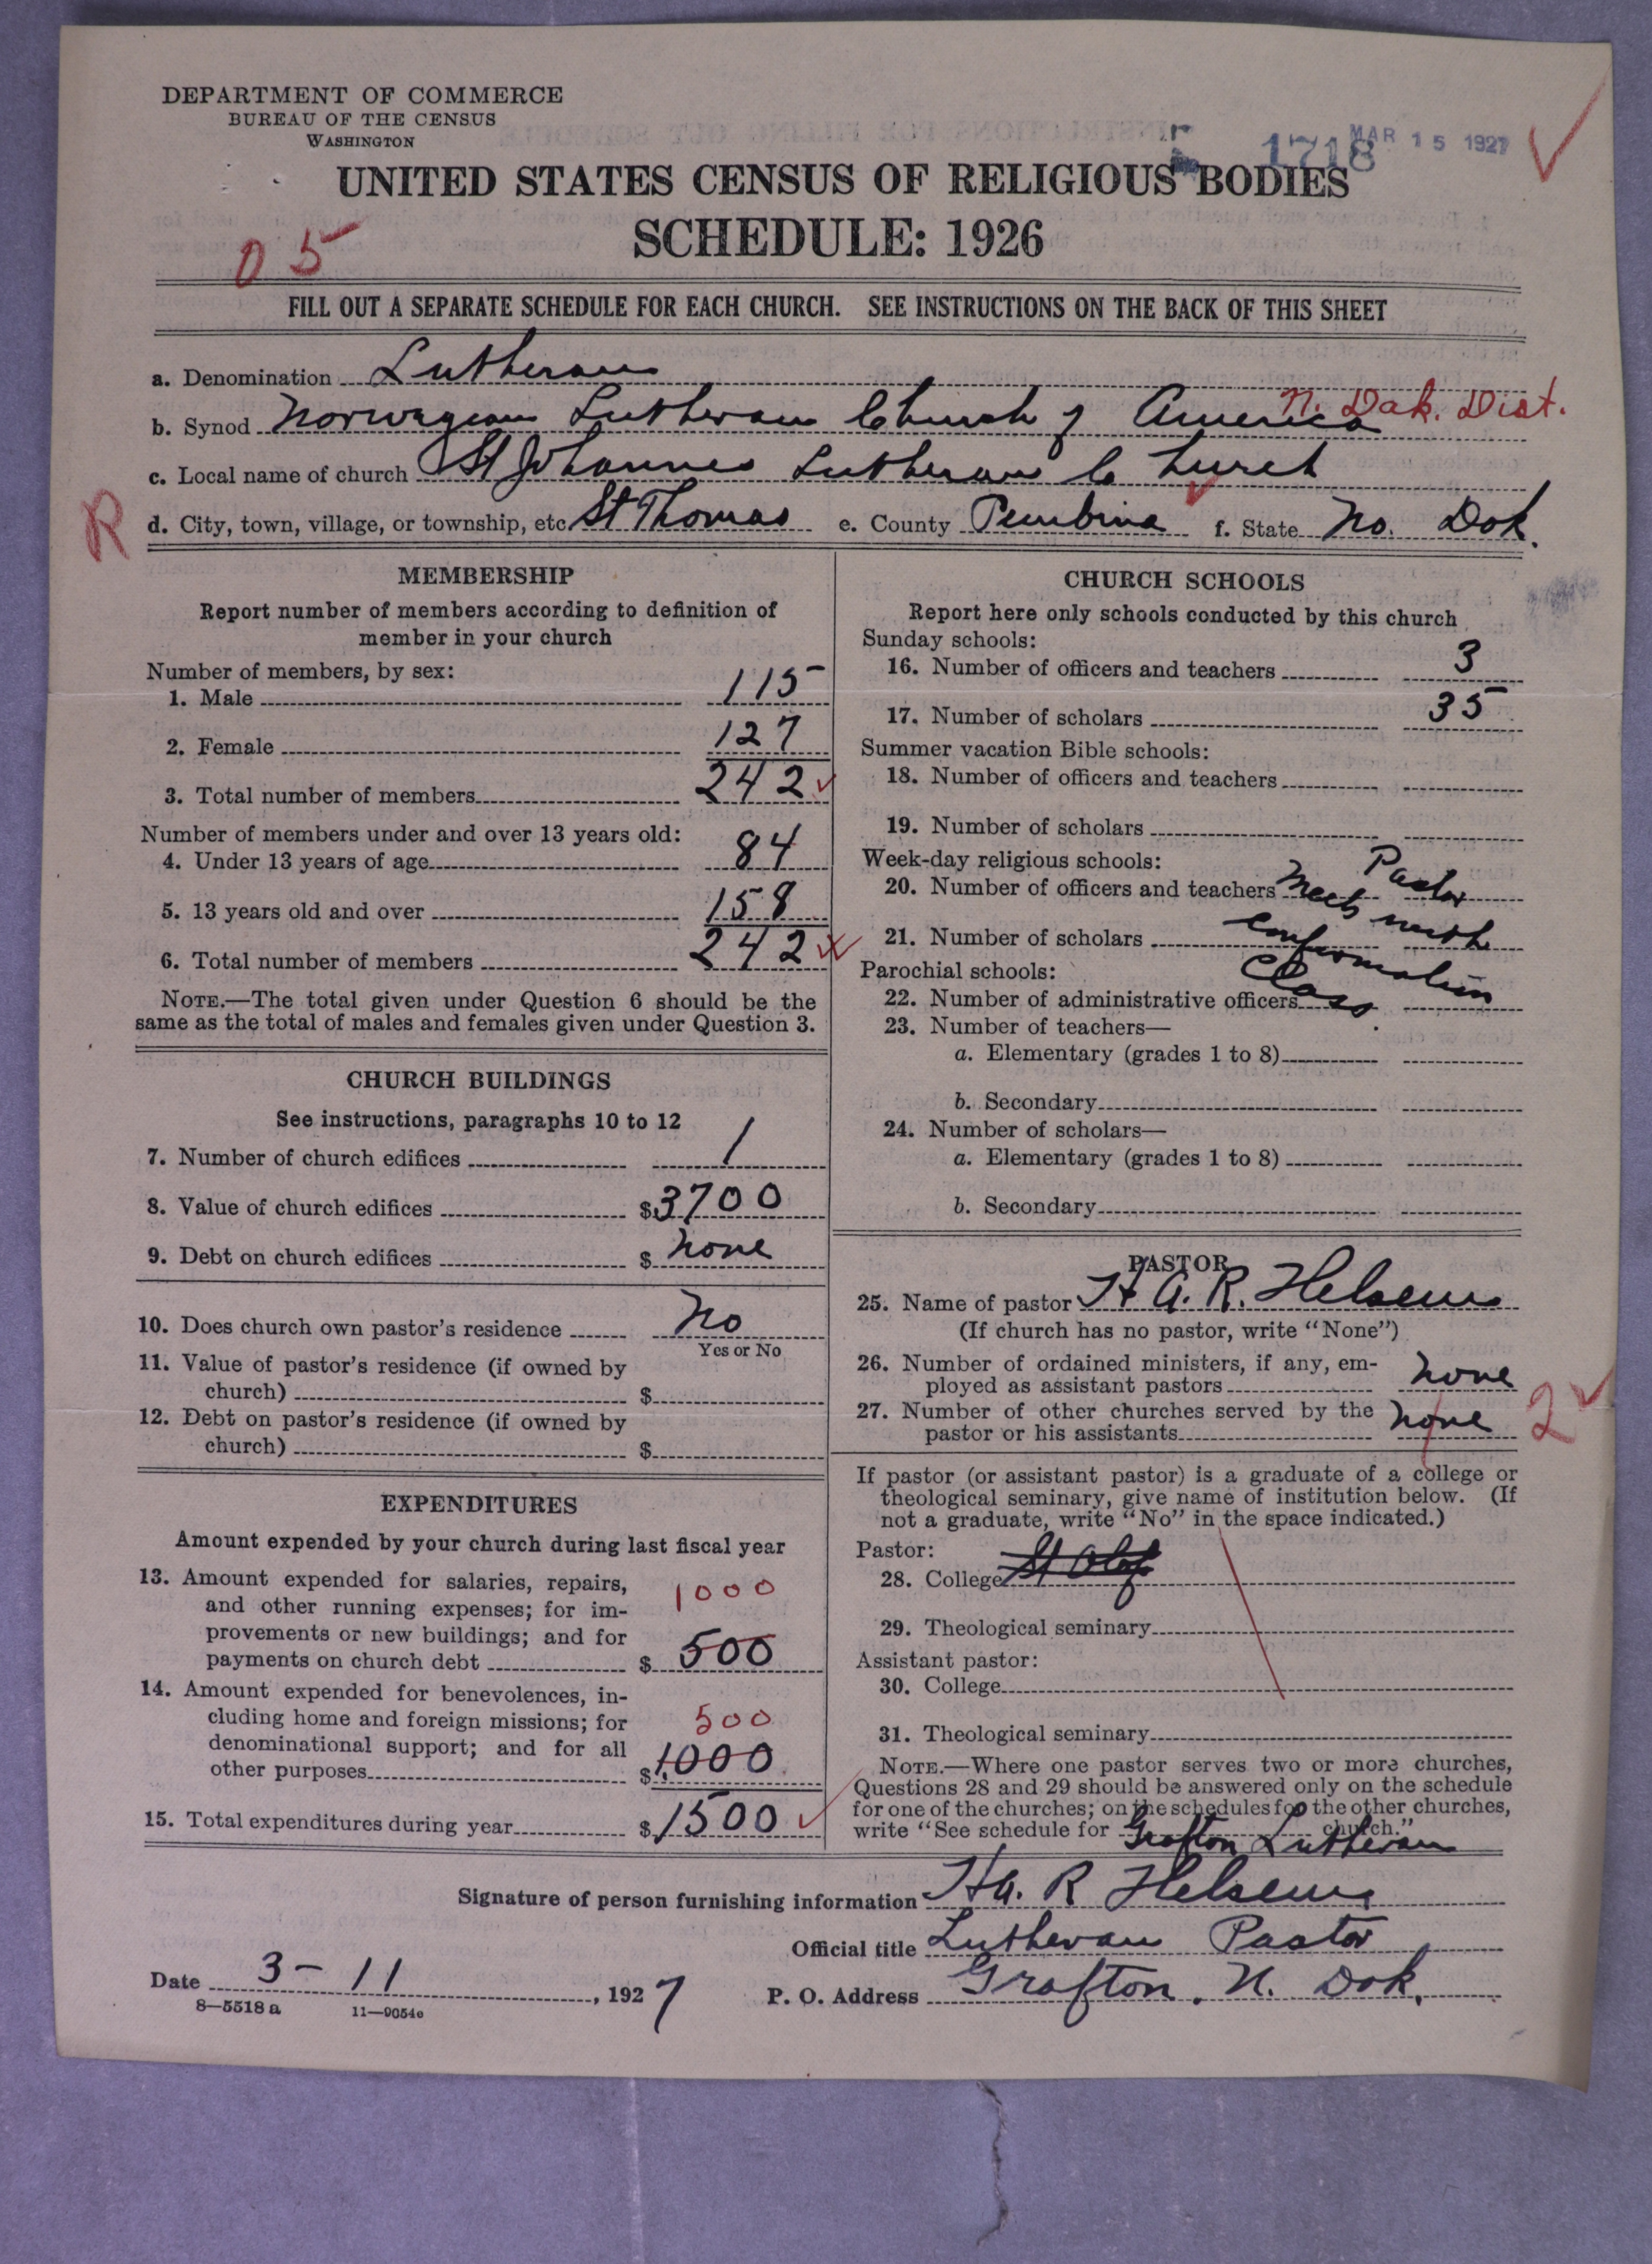 DEPARTMENT OF COMMERCE
BUREAU OF THE CENSUS
WASHINGTON
1718
MAR 15 1927
UNITED STATES CENSUS OF RELIGIOUS BODIES
SCHEDULE: 1926
05
FILL OUT A SEPARATE SCHEDULE FOR EACH CHURCH. SEE INSTRUCTIONS ON THE BACK OF THIS SHEET
a. Denomination Lutheran
b. Synod Norwegian Lutheran Church of America N. Dak. Dist.
c. Local name of church St Johannes Lutheran Church
R
d. City, town, village, or township, etc St Thomas e. County Pembina f. State No. Dak.
MEMBERSHIP
Report number of members according to definition of
member in your church
Number of members, by sex:
1. Male 115
2. Female 127
3. Total number of members 242
Number of members under and over 13 years old:
4. Under 13 years of age 84
5. 13 years old and over 158
6. Total number of members 242
NOTE.—The total given under Question 6 should be the
same as the total of males and females given under Question 3.
CHURCH BUILDINGS
See instructions, paragraphs 10 to 12
7. Number of church edifices 1
8. Value of church edifices $3700
9. Debt on church edifices $ none
10. Does church own pastor's residence No
Yes or No
11. Value of pastor's residence (if owned by
church) $
12. Debt on pastor's residence (if owned by
church) $
EXPENDITURES
Amount expended by your church during last fiscal year
13. Amount expended for salaries, repairs,
and other running expenses; for im-
provements or new buildings; and for
payments on church debt $ 500
1000
14. Amount expended for benevolences, in-
cluding home and foreign missions; for
denominational support; and for all
other purposes $ 1,000
500
15. Total expenditures during year $ 1500
CHURCH SCHOOLS
Report here only schools conducted by this church
Sunday schools:
16. Number of officers and teachers 3
17. Number of scholars 35
Summer vacation Bible schools:
18. Number of officers and teachers
19. Number of scholars
Week-day religious schools:
20. Number of officers and teachers
21. Number of scholars
Pastor
meets with
confirmation
class.
Parochial schools:
22. Number of administrative officers
23. Number of teachers—
a. Elementary (grades 1 to 8)
b. Secondary
24. Number of scholars—
a. Elementary (grades 1 to 8)
b. Secondary
PASTOR
25. Name of pastor H A. R. Helseus
(If church has no pastor, write "None")
26. Number of ordained ministers, if any, em-
ployed as assistant pastors none
27. Number of other churches served by the
pastor or his assistants none 2
If pastor (or assistant pastor) is a graduate of a college or
theological seminary, give name of institution below. (If
not a graduate, write "No" in the space indicated.)
Pastor:
28. College St Olaf
29. Theological seminary
Assistant pastor:
30. College
31. Theological seminary
NOTE.—Where one pastor serves two or more churches,
Questions 28 and 29 should be answered only on the schedule
for one of the churches; on the schedules for the other churches,
write "See schedule for Grafton Lutheran church."
Signature of person furnishing information H A. R Helseus
Official title Lutheran Pastor
Date 3-11, 1927 P. O. Address Grafton, N. Dak.
8—5518 a 11—9054c